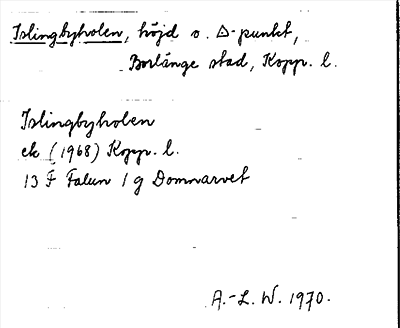 Islingbyholen, höjd o. Δ-punkt,
Borlänge stad, Kopp. l.
Islingbyholen
ek (1968) Kopp. l.
13 F Falun 1 g Domnarvet
A.-L. W. 1970.